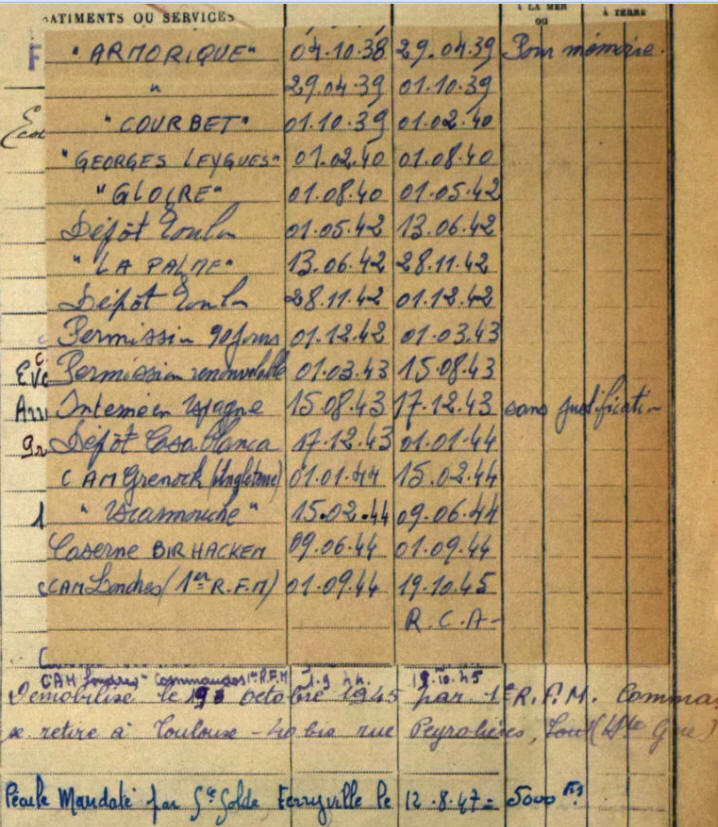 ATIMENTS OU SERVICES A LA MER OU A TERRE
"ARMORIQUE" 04.10.38 29.04.39 Pour mémoire.
" 29.04.39 01.10.39
"COURBET" 01.10.39 01.02.40
"GEORGES LEYGUES" 01.02.40 01.08.40
"GLOIRE" 01.08.40 01.05.42
Dépôt Toulon 01.05.42 13.06.42
"LA PALME" 13.06.42 28.11.42
Dépôt Toulon 28.11.42 01.12.42
Permission 90 jours 01.12.42 01.03.43
Permission renouvelable 01.03.43 15.08.43
Interné en Espagne 15.08.43 17.12.43 sans justification
Dépôt Casablanca 17.12.43 01.01.44
CAM Grenock (Angleterre) 01.01.44 15.02.44
" Escarmouche " 15.02.44 09.06.44
Caserne BIR HACKEM 09.06.44 01.09.44
CAM Londres (1er R.F.M) 01.09.44 19.10.45
R.C.A-
CAM Londres - Commandos 1er R.F.M 1.9.44. 19.10.45
Démobilisé le 19 octobre 1945 par 1er R.F.M. Comma
se retire à Toulouse - 40 bis rue Peyrolières,
Pécule Mandaté par Sce Solde, Ferryville le 12.8.47 = 5000 Frs